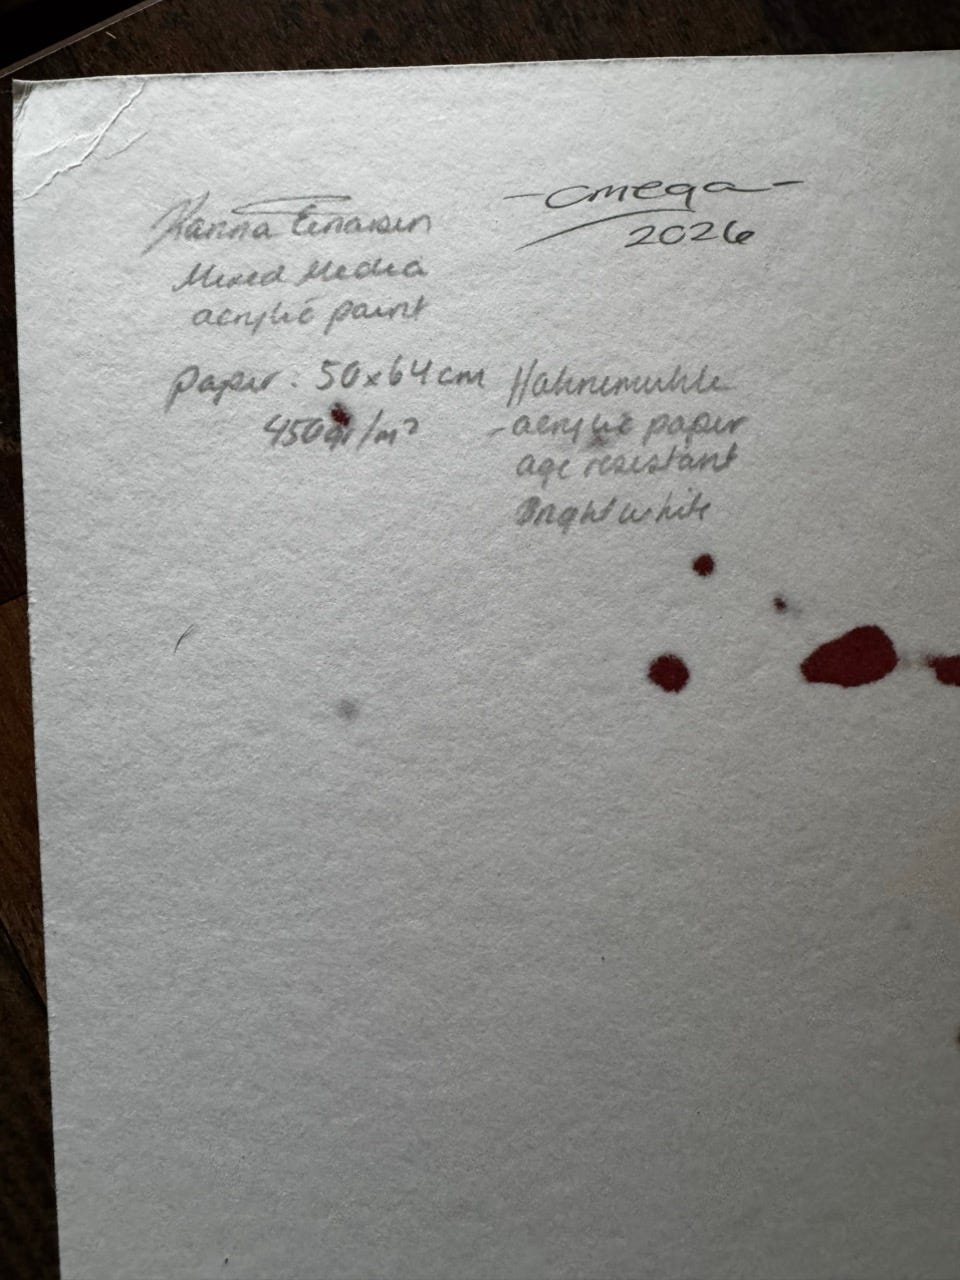 -omega-
2026
Mixed Media
acrylic paint
paper: 50x64cm
450gr/m²
Hahnemuhle
-acrylic paper
age resistant
Bright white